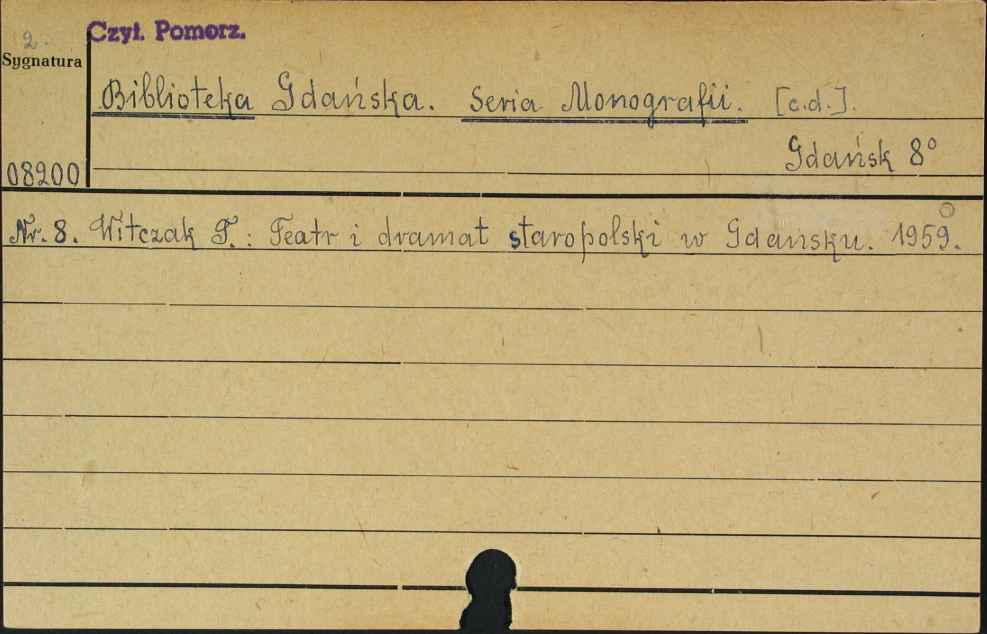 Czyt. Pomorz.
2.
Sygnatura
Biblioteka Gdańska. Seria Monografii. [c.d.].
Gdańsk 8°
08200
Nr. 8. Witczak T.: Teatr i dramat staropolski w Gdańsku. 1959.